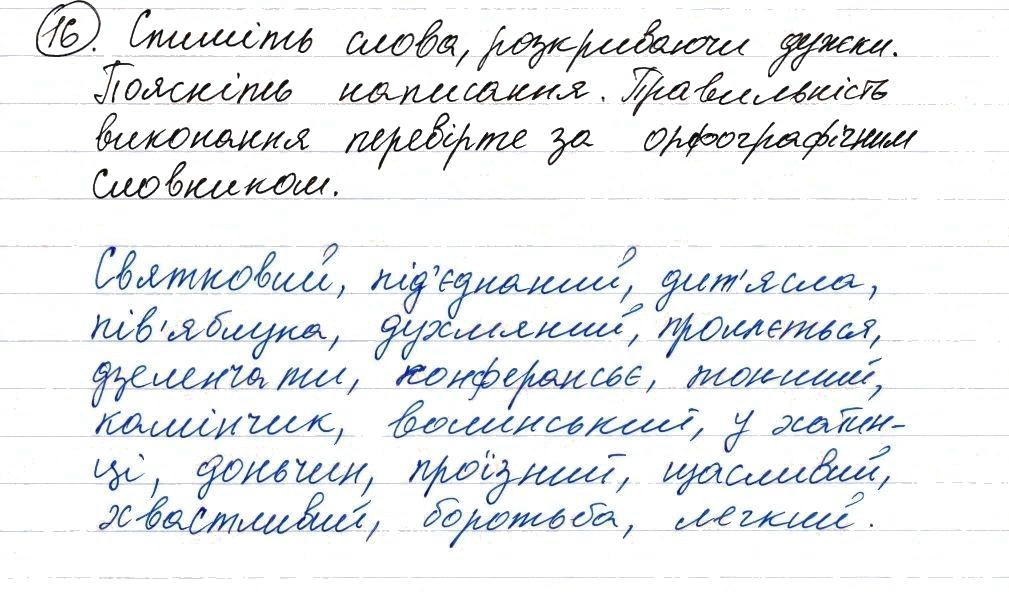 16. Спишіть слова, розкриваючи дужки.
Поясніть написання. Правильність
виконання перевірте за орфографічним
словником.
Святковий, під'єднаний, дит'ясла,
пів'яблука, духмяний, проллється,
дзеленчати, конферансьє, тонший,
камінчик, волинський, у хатин-
ці, доньчин, проїзний, щасливий,
хвастливий, боротьба, легкий.